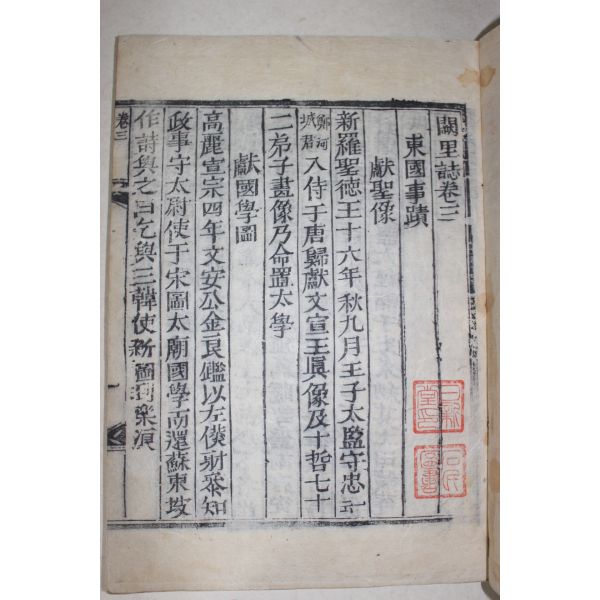 闕里誌卷三
東國事蹟
獻聖像
新羅聖德王十六年秋九月王子太監守忠
鄭河
城君
入侍于唐歸獻文宣王眞像及十哲七十
二弟子畫像乃命置太學
獻國學圖
高麗宣宗四年文安公金良鑑以左僕射叅知
政事守太尉使于宋圖太廟國學而還蘇東坡
作詩與之曰乞與三韓使新圖到樂浪
卷三